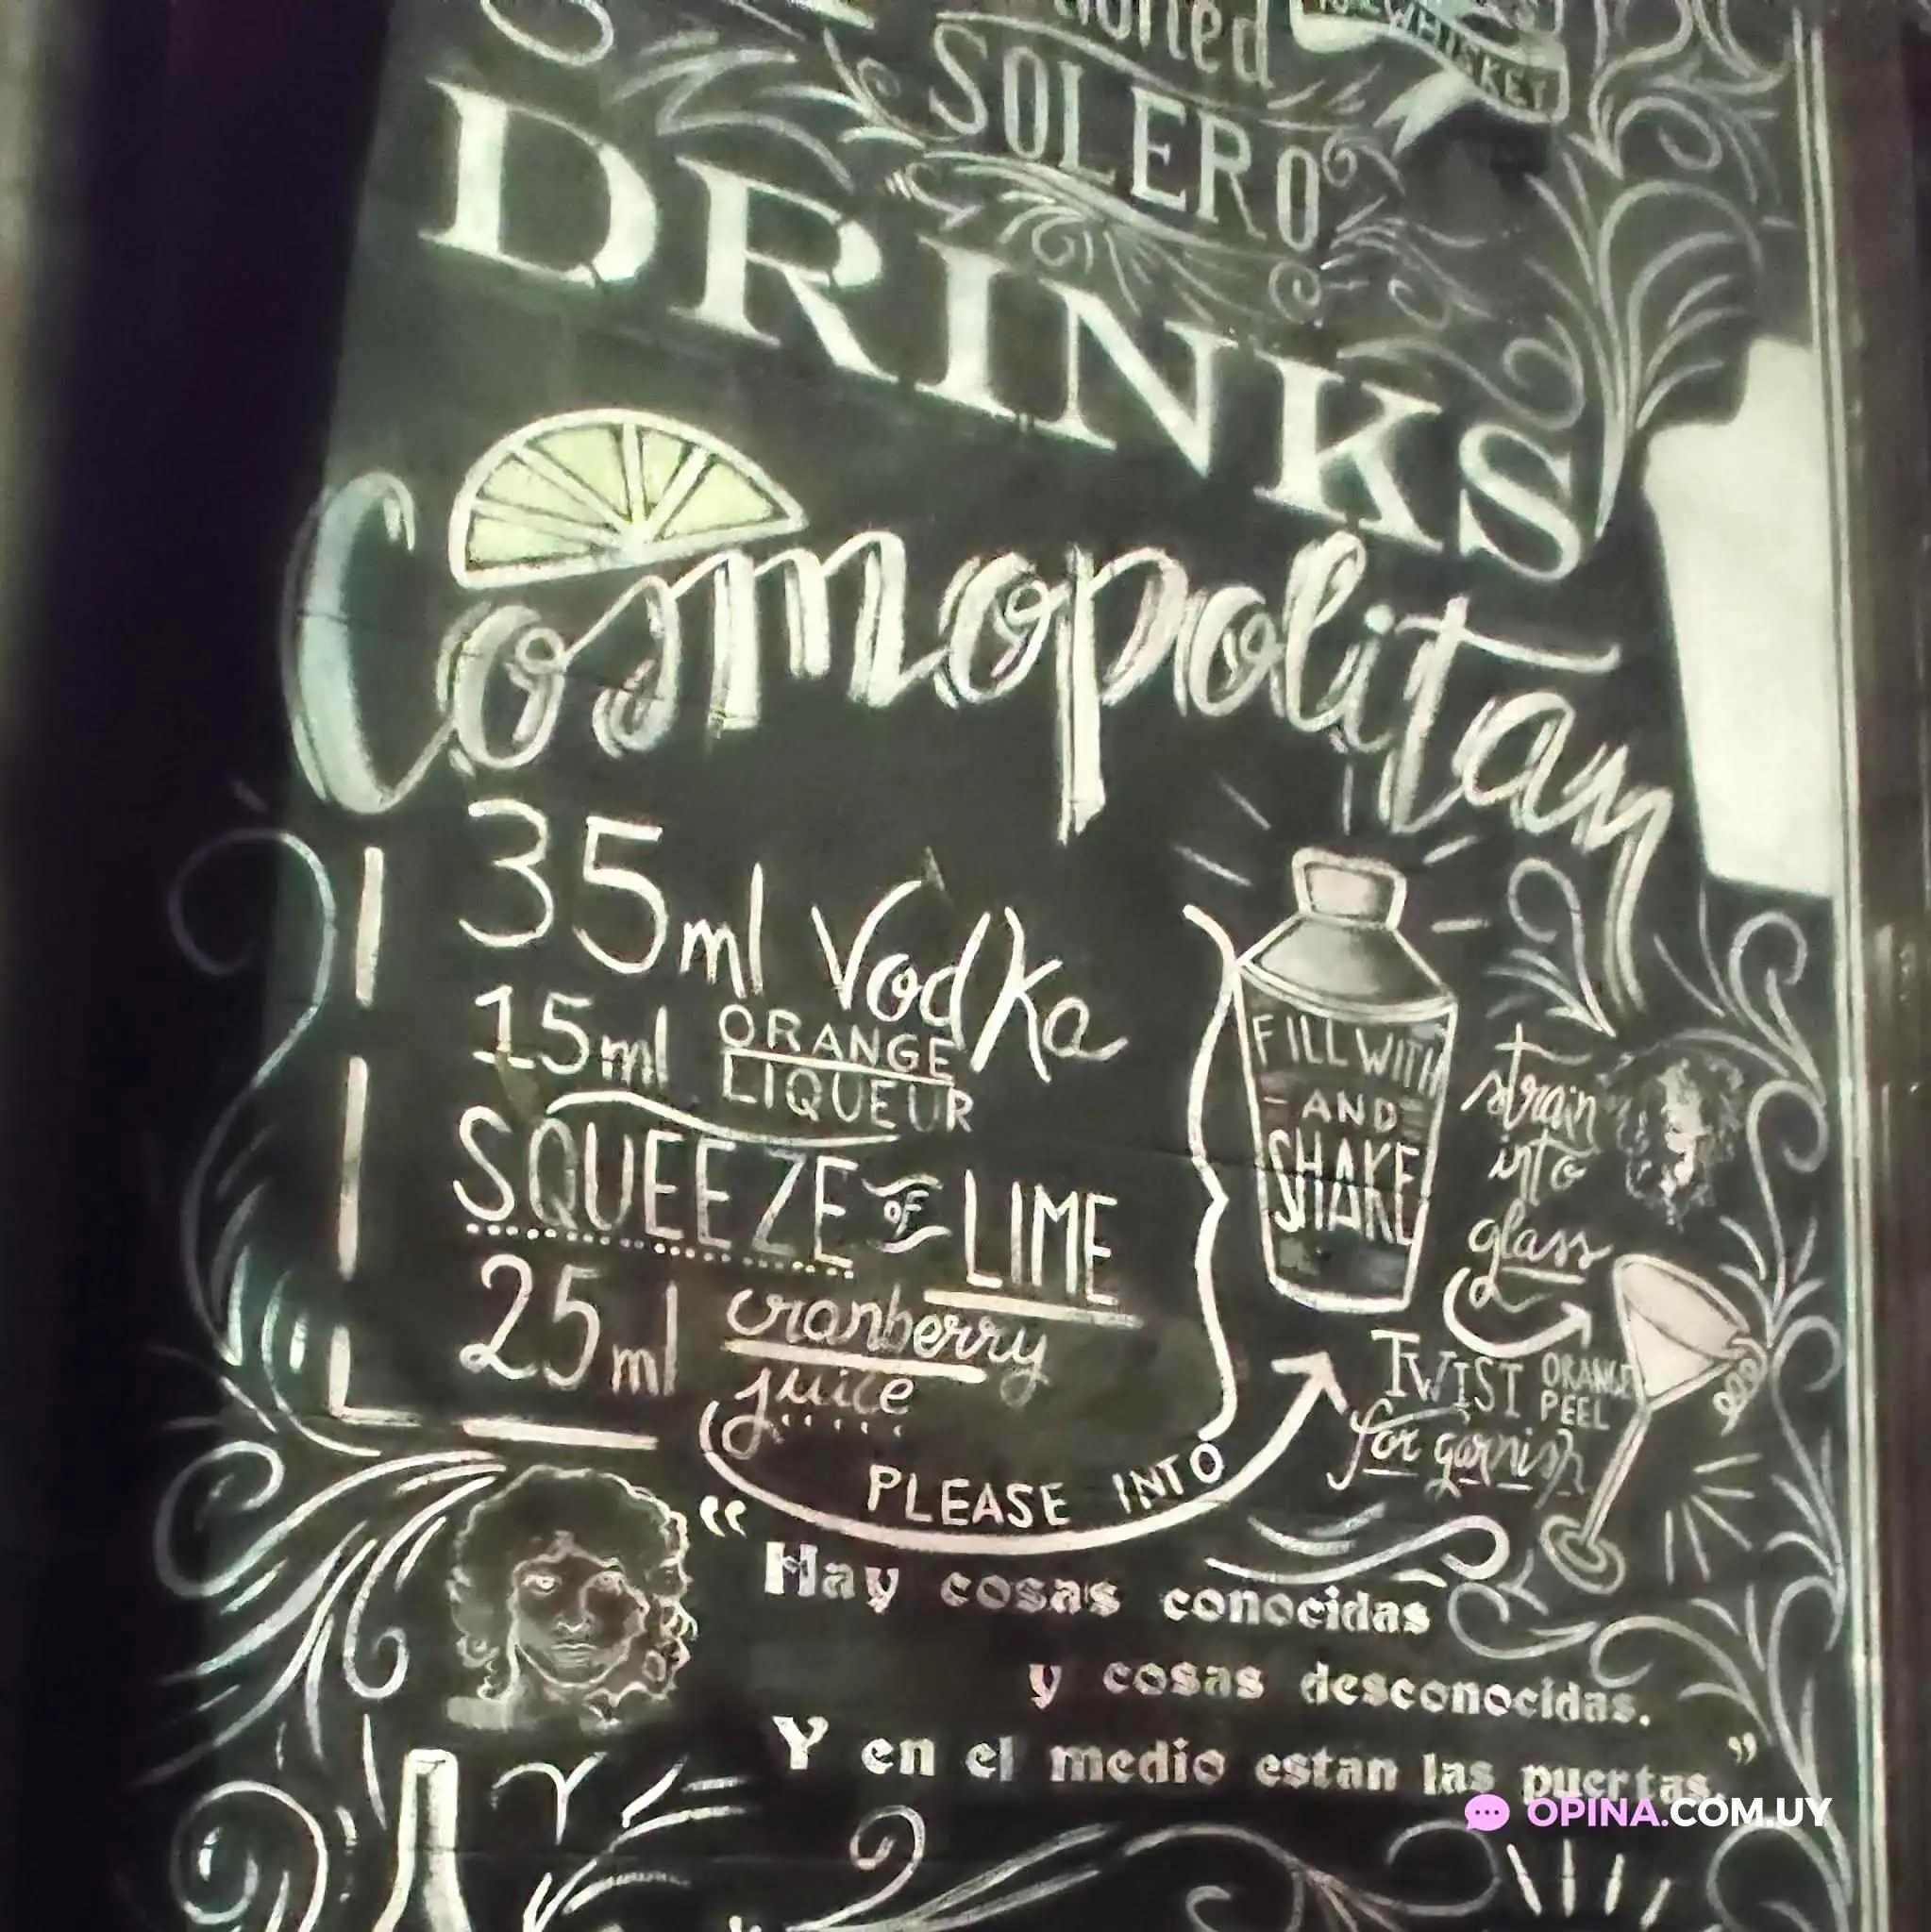 SOLERO
DRINKS
Cosmopolitan
35ml Vodka
15ml ORANGE
LIQUEUR
SQUEEZE OF LIME
25ml cranberry
juice
PLEASE INTO
FILL WITH
AND
SHAKE
strain
into
glass
TWIST ORANGE
PEEL
for garnish
“Hay cosas conocidas
y cosas desconocidas.
Y en el medio estan las puertas.”
OPINA.COM.UY